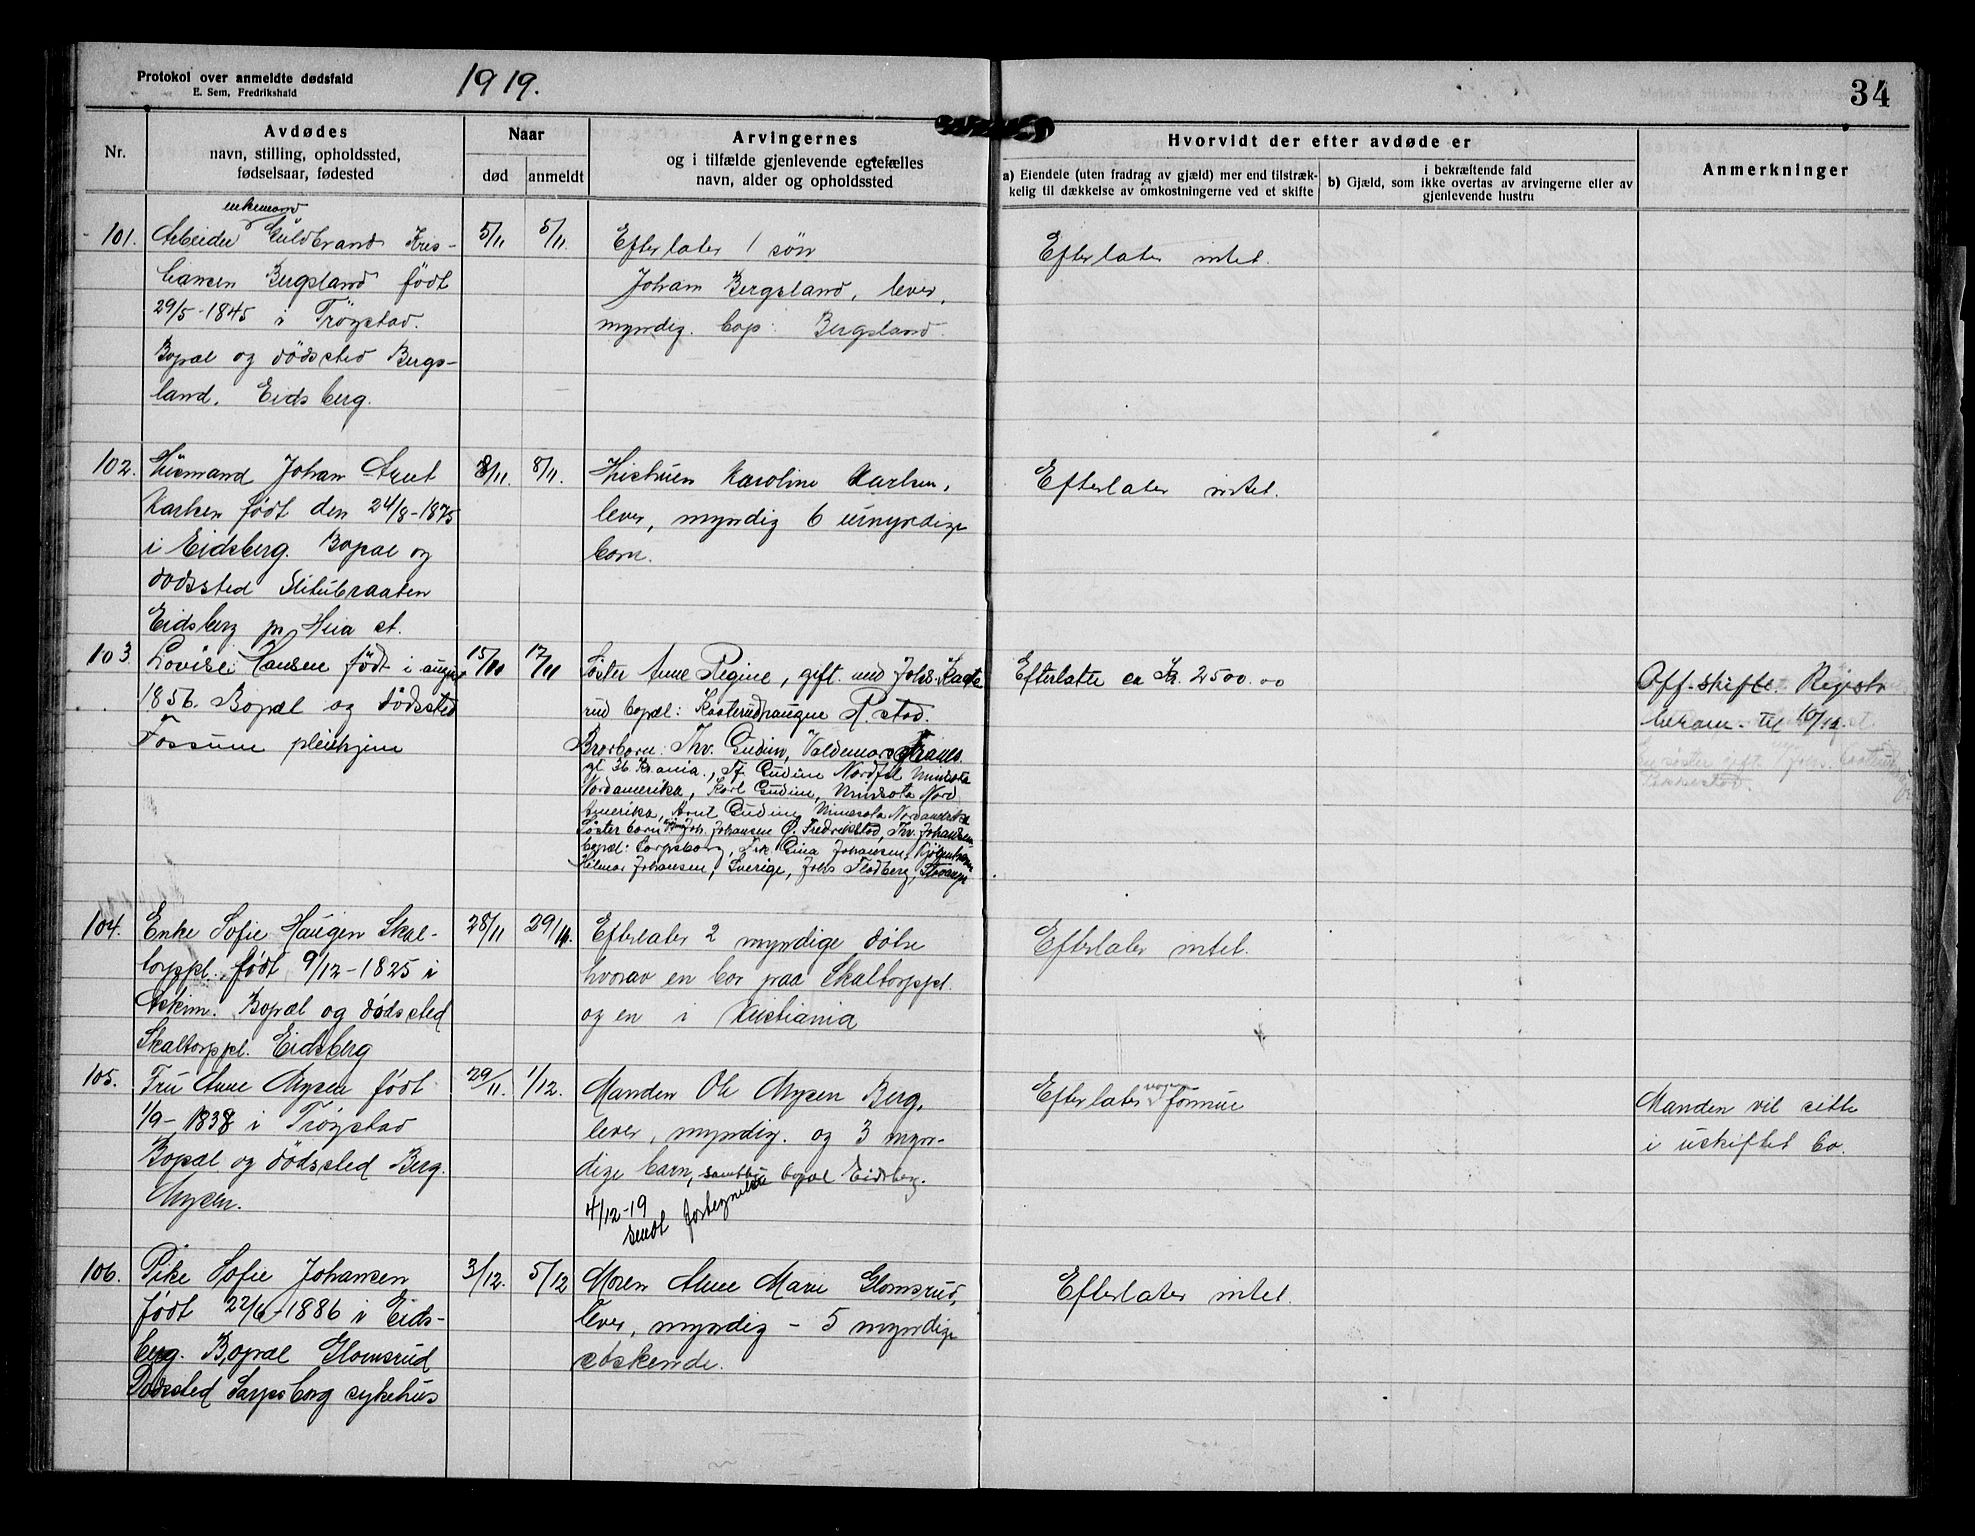 Protokol over anmeldte dødsfald
E. Sem, Fredrikshald
1919.
34
Nr.
Avdødes
navn, stilling, opholdssted,
fødselsaar, fødested
Naar
død
anmeldt
Arvingernes
og i tilfælde gjenlevende egtefælles
navn, alder og opholdssted
Hvorvidt der efter avdøde er
a) Eiendele (uten fradrag av gjæld) mer end tilstræk-
kelig til dækkelse av omkostningerne ved et skifte
i bekræftende fald
b) Gjæld, som ikke overtas av arvingerne eller av
gjenlevende hustru
Anmerkninger
101.
enkemand
Arbeider Guldbrand Kris-
tiansen Bergsland født
29/5-1845 i Trøgstad.
Bopæl og dødssted Bergs-
land, Eidsberg.
5/11
5/11.
Efterlater 1 søn
Johan Bergsland, lever,
myndig. bop: Bergsland.
Efterlater intet.
102.
Husmand Johan Arent
Karlsen født den 24/8-1875
i Eidsberg. Bopæl og
dødssted Slitubraaten
Eidsberg pr Heia st.
8/11.
8/11.
Hustruen Karoline Karlsen,
lever, myndig 6 umyndige
barn.
Efterlater intet.
103.
Lovise Hansen født i august
1856. Bopæl og dødssted
Fossum pleiehjem
15/11
17/11
Søster Anne Regine, gift med Johs. Kaste
rud bopæl: Kasterudhaugen R.stad.
Brorbarn: Thv. Gudim, Valdemar Thranes
gt 36 Kr.ania., Tf. Gudim Nordfil Minisota
Nordamerika, Karl Gudim, Minisota Nord
Amerika, Arnt Gudim Minisota Nordamerika
Søsterbarn Joh. Johansen Ø. Fredrikstad, Thv. Johansen
bopæl: Sarpsborg, Frk. Gina Johansen, Kjøbenhavn
Hilmar Johansen, Sverige, Johs Flodberg, Stavanger
Efterlatte er Kr. 2500.00
Off. skifte. Registr
beram. til 10/12.
En søster gift Johs. Casterud
Rakkestad.
104.
Enke Sofie Haugen Skal-
torppl. født 9/12-1825 i
Askim. Bopæl og dødssted
Skaltorppl. Eidsberg
28/11
29/11.
Efterlater 2 myndige døtre
hvorav en bor paa Skaltorppl.
og en i Kristiania
Efterlater intet.
105.
Fru Anne Mysen født
1/9-1838 i Trøgstad
Bopæl og dødssted Berg.
Mysen.
29/11.
1/12.
Manden Ole Mysen Berg,
lever, myndig. og 3 myn-
dige barn, samtlige bopæl Eidsberg.
4/12-19
sendt fortegnelse
Efterlater nogen formue
Manden vil sitte
i uskiftet bo.
106.
Pike Sofie Johansen
født 22/6-1886 i Eids-
berg. Bopæl Glomsrud
Dødssted Sarpsborg sykehus
3/12.
5/12
Moren Anne Marie Glomsrud,
lever, myndig - 5 myndige
søskende.
Efterlater intet.